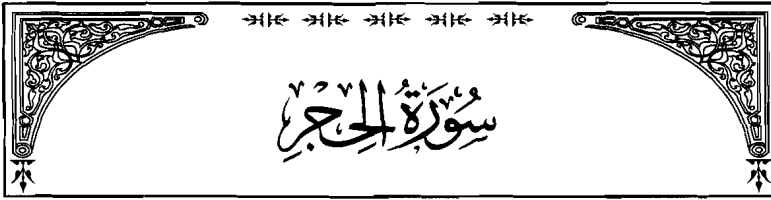 سُورَةُ الْحِجْرِ